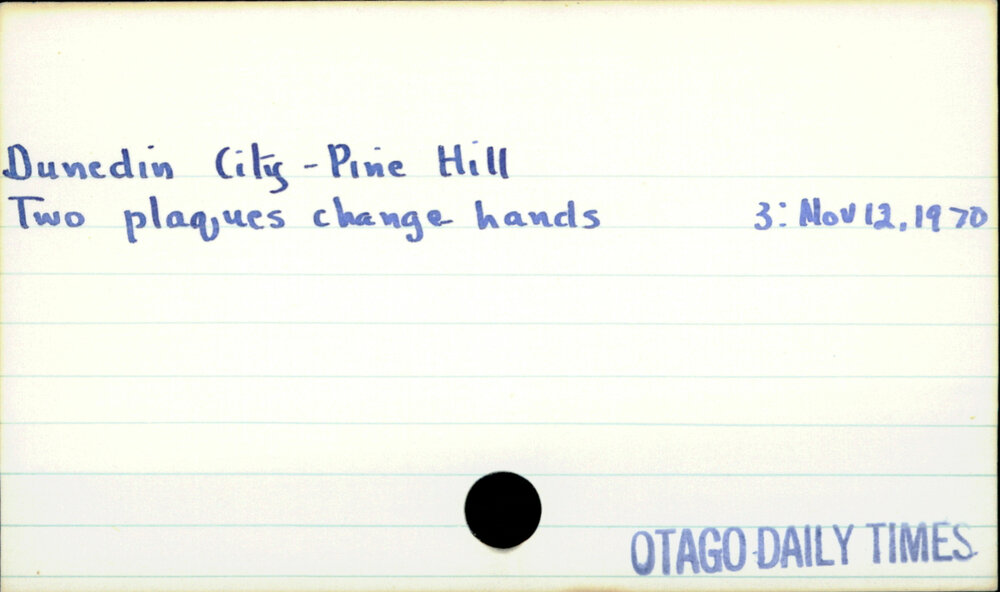 Dunedin City - Pine Hill
Two plaques change hands 3: Nov 12, 1970
OTAGO DAILY TIMES